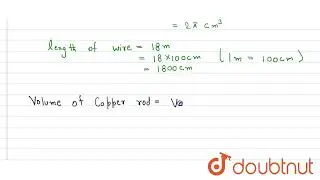 = 2π cm³
length of wire = 18m
= 18×100cm (1m = 100cm)
= 1800cm
Volume of Copper rod = Vo
doubtnut